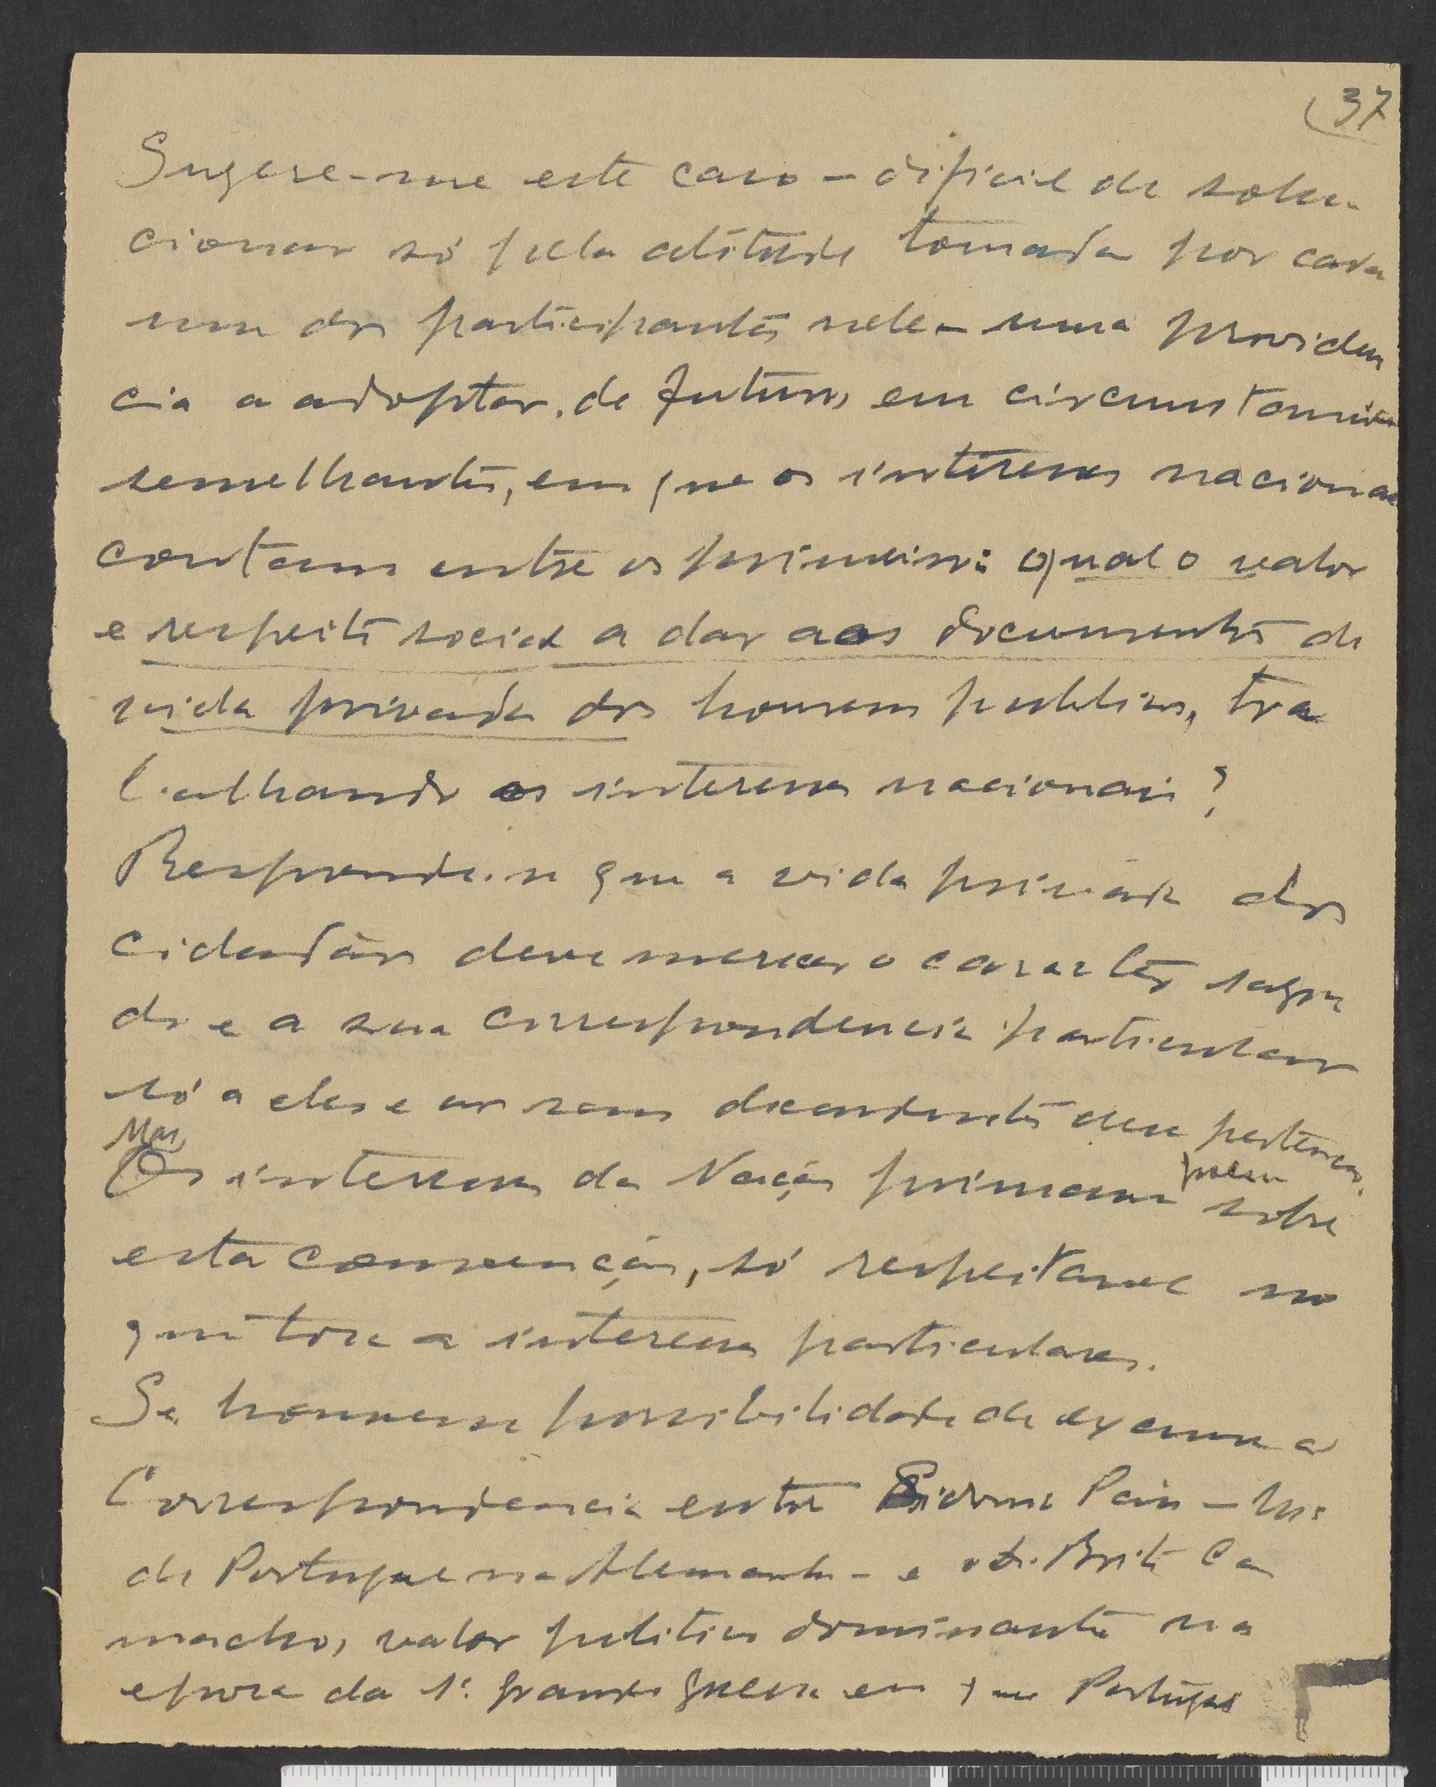 37
Sugere-me este caso – dificil de solu-
cionar só pela atitude tomada por cada
um dos participantes nele – uma providen
cia a adoptar, de futuro, em circumstancias
semelhantes, em que os interesses nacionaes
contam entre os primeiros: qual o valor
e respeito social a dar aos documentos de
vida privada dos homens publicos, tra
balhando os interesses nacionais?
Responde-se que a vida privada dos
cidadãos deve merecer o caracter sagra
do e a sua correspondencia particular
só a eles e aos seus descendentes deve pertencer.
Mas
Os interesses da Nação primam sobre
esta convenção, só respeitavel no
que toca a interesses particulares.
Se houvesse possibilidade de exame a
Correspondencia entre Sidonio Pais – Mi.
de Portugal na Alemanha – e o Dr. Brito Ca
macho, valor politico dominante na
epoca da 1ª. grande guerra em que Portugal